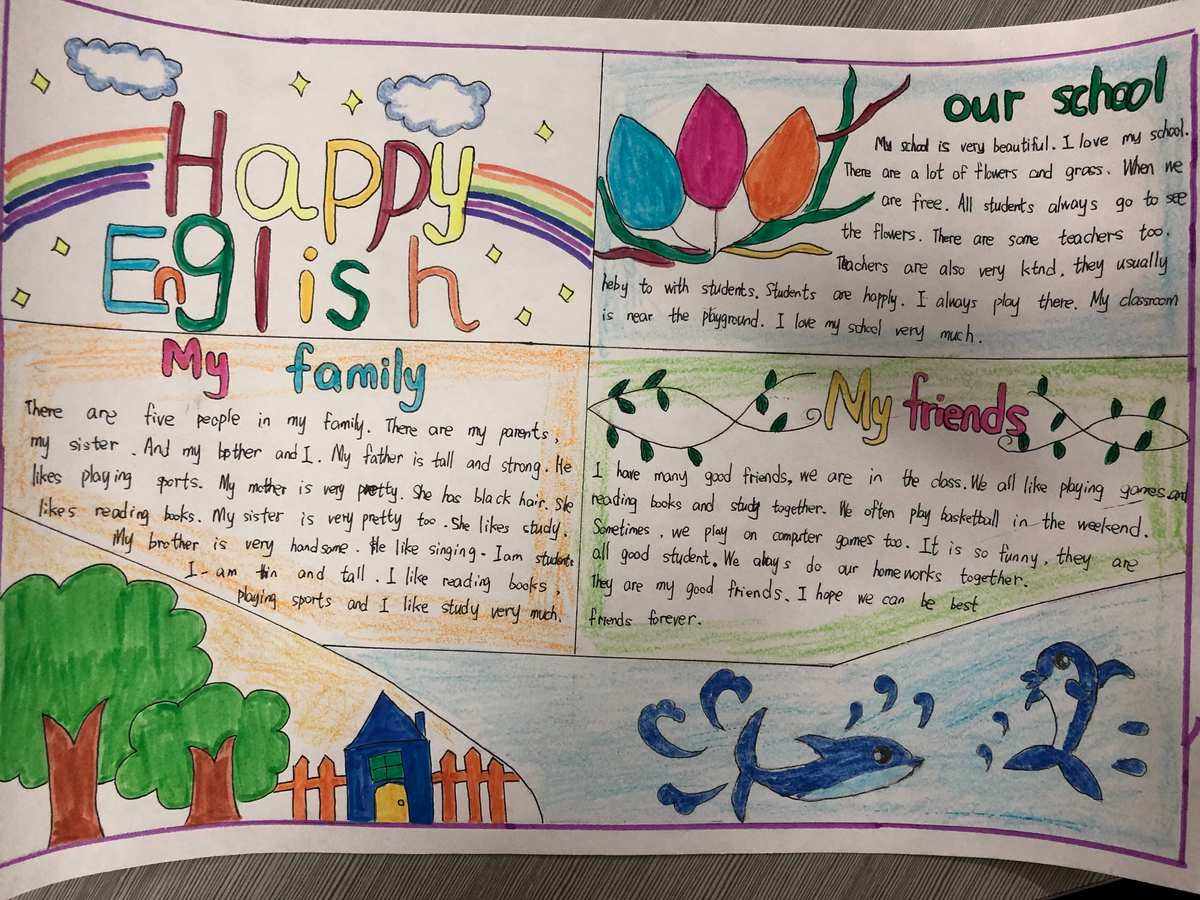 Happy
English
our school
My school is very beautiful. I love my school.
There are a lot of flowers and grass. When we
are free. All students always go to see
the flowers. There are some teachers too.
Teachers are also very kind, they usually
heby to with students. Students are happy. I always play there. My classroom
is near the playground. I love my school very much.
My family
There are five people in my family. There are my parents,
my sister. And my bother and I. My father is tall and strong. He
likes playing sports. My mother is very pretty. She has black hair. She
likes reading books. My sister is very pretty too. She likes study.
My brother is very handsome. He like singing. I am student.
I am thin and tall. I like reading books,
playing sports and I like study very much.
My friends
I have many good friends, we are in the class. We all like playing games and
reading books and study together. We often play basketball in the weekend.
Sometimes, we play on computer games too. It is so funny, they are
all good student. We always do our homeworks together.
They are my good friends. I hope we can be best
friends forever.